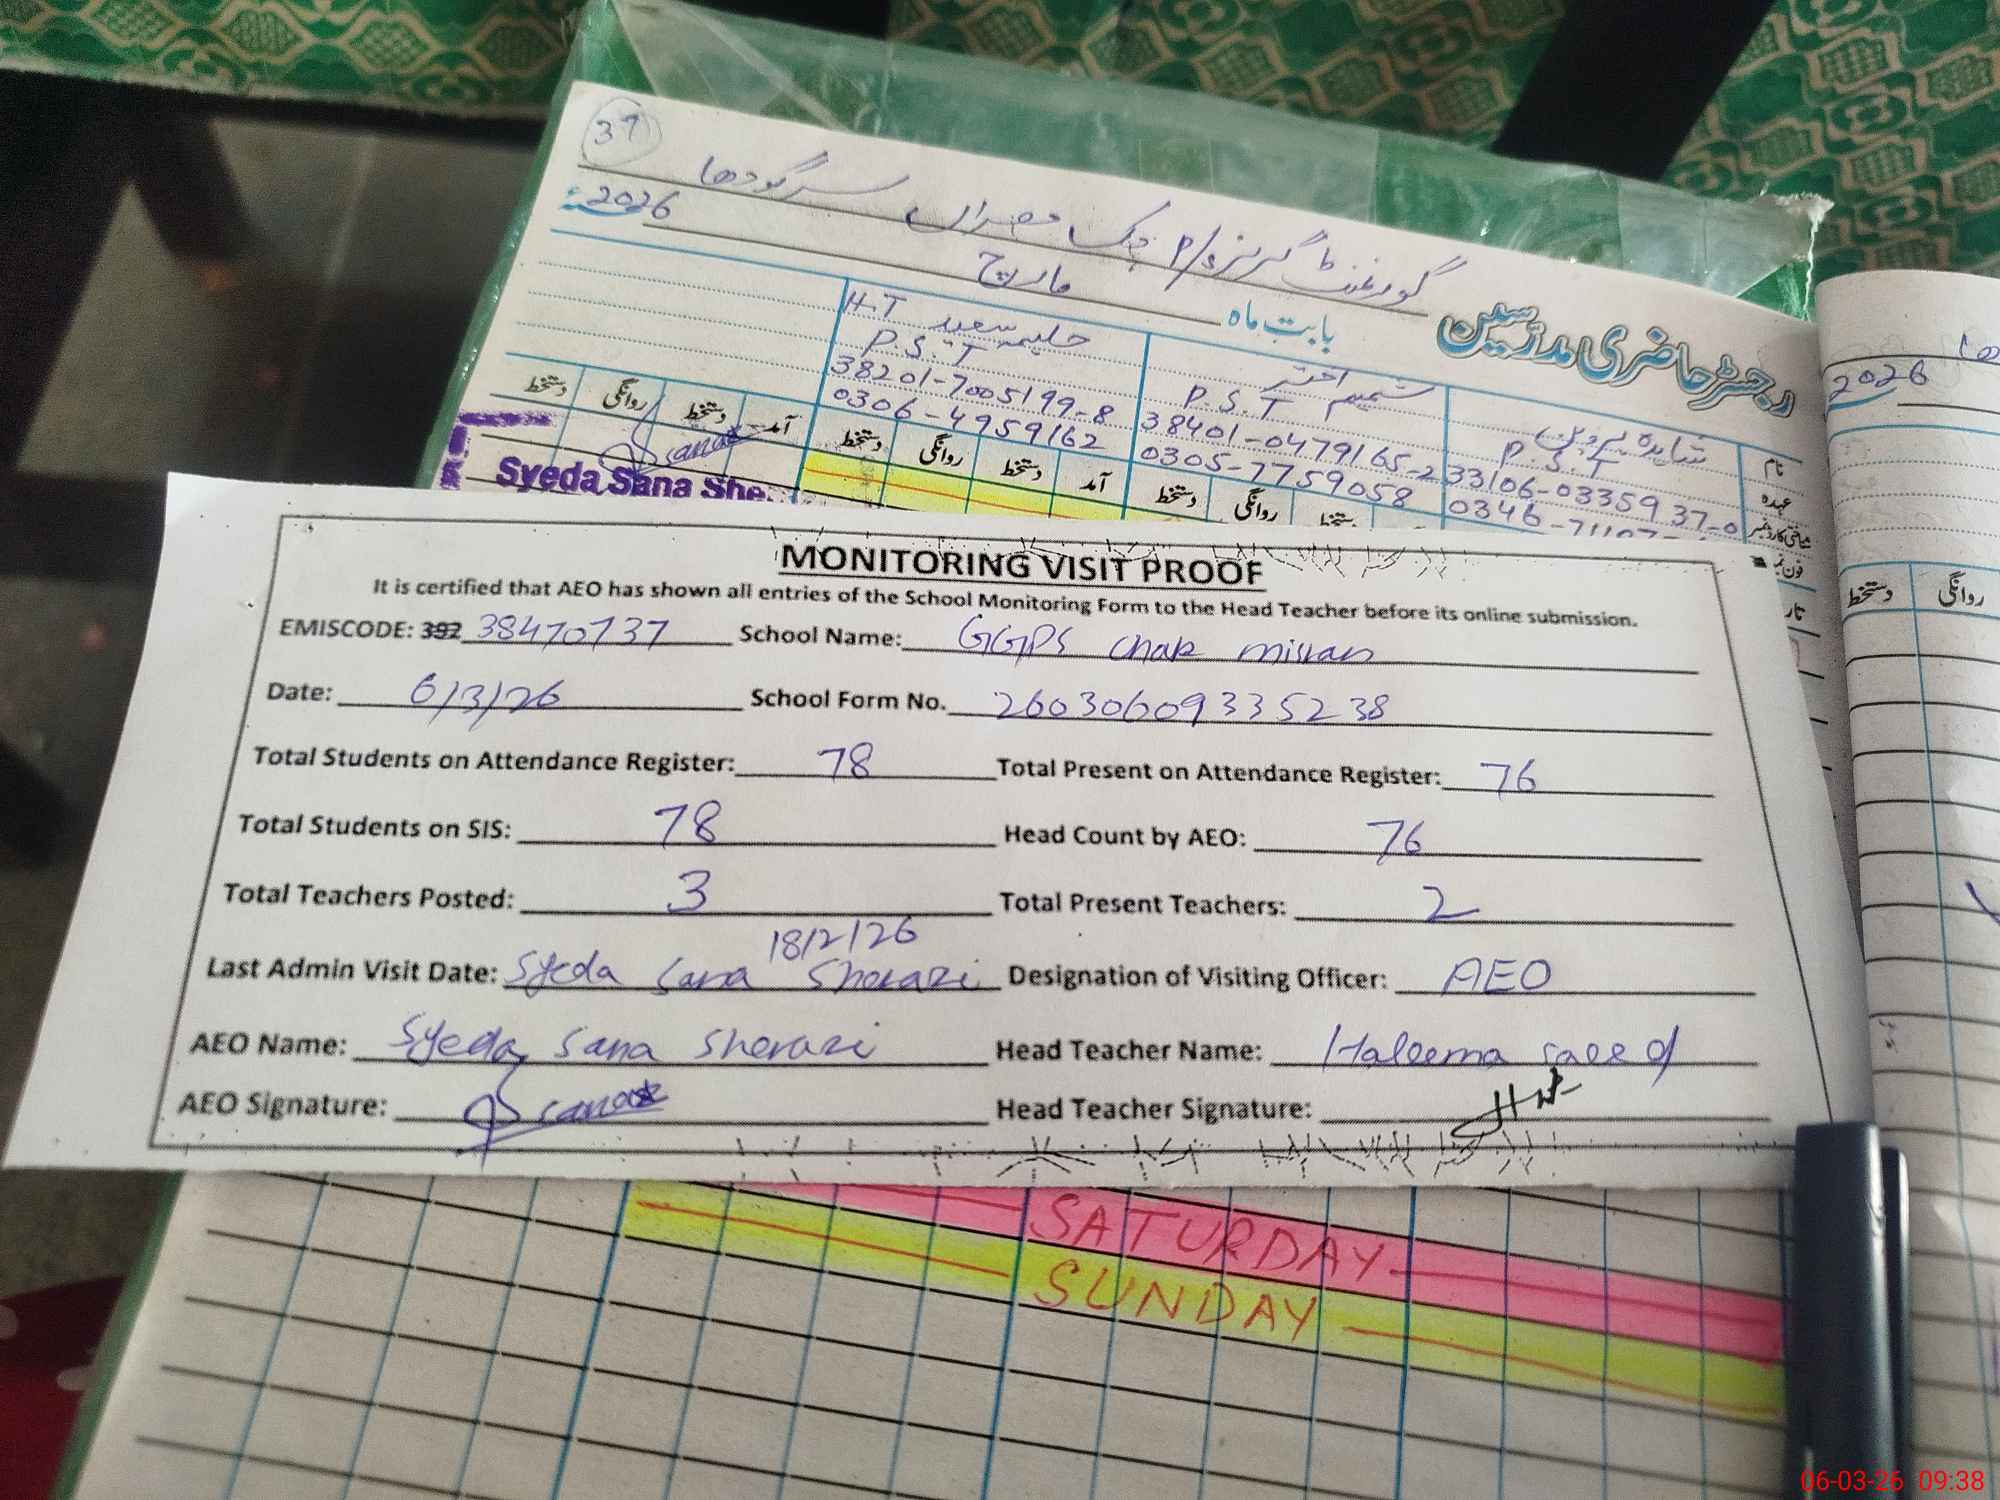 39
گورنمنٹ گرلز P/ چک مصراں سرگودھا
2026ء
رجسٹر حاضری مدرسین
بابت ماہ مارچ
نام شاہدہ پروین شمیم اختر حلیمہ سعید H.T
عہدہ P.S.T P.S.T P.S.T
شناختی کارڈ نمبر 33106-0335937-0 38401-0479165-2 38201-7005199-8
فون نمبر 0346-71107 0305-7759058 0306-4959162
دستخط روانگی دستخط آمد دستخط روانگی دستخط آمد دستخط روانگی دستخط
Sana
Syeda Sana She
2026
روانگی دستخط
MONITORING VISIT PROOF
It is certified that AEO has shown all entries of the School Monitoring Form to the Head Teacher before its online submission.
EMISCODE: 392 38470737 School Name: GGPS Chak misran
Date: 6/3/26 School Form No. 26030609335238
Total Students on Attendance Register: 78 Total Present on Attendance Register: 76
Total Students on SIS: 78 Head Count by AEO: 76
Total Teachers Posted: 3 Total Present Teachers: 2
18/2/26
Last Admin Visit Date: Syeda Sana Sherazi Designation of Visiting Officer: AEO
AEO Name: Syeda Sana Sherazi Head Teacher Name: Haleema Saeed
AEO Signature: Sana Head Teacher Signature:
SATURDAY
SUNDAY
06-03-26 09:38